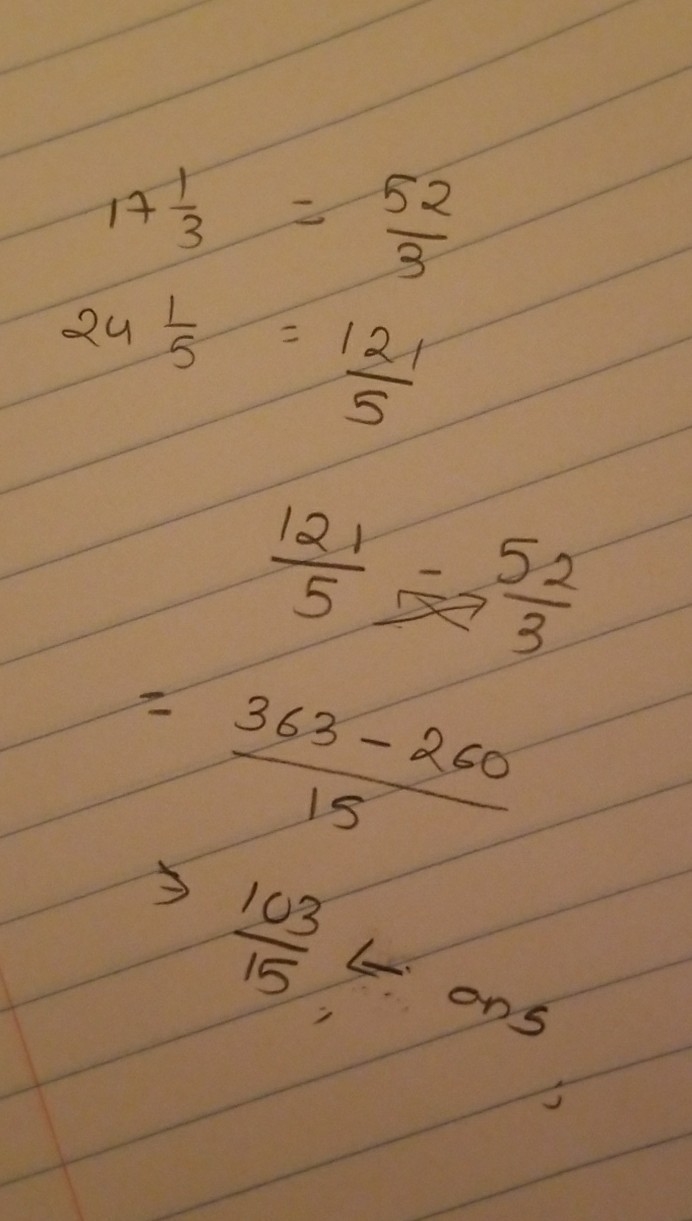 17 1/3 = 52/3
24 1/5 = 121/5
121/5 - 52/3
= 363 - 260 / 15
⇒ 103/15 ← ans